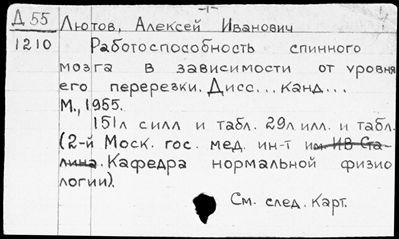 -1-
Д 55 Лютов, Алексей Иванович
1210 Работоспособность спинного
мозга в зависимости от уровня
его перерезки. Дисс... канд...
М., 1955.
151л с илл и табл. 29л илл. и табл.
(2-й Моск. гос. мед. ин-т им ИВ Ста-
лина. Кафедра нормальной физио
логии).
См. след. карт.